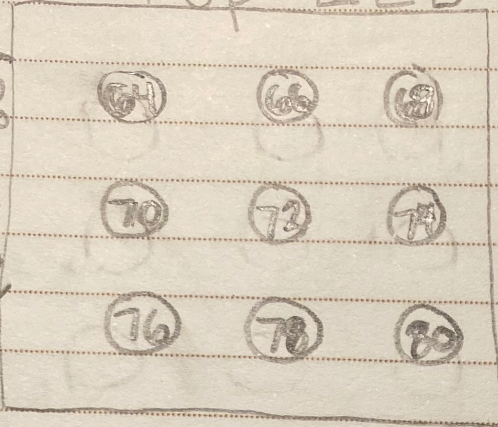 64 66 68
70 72 74
76 78 80